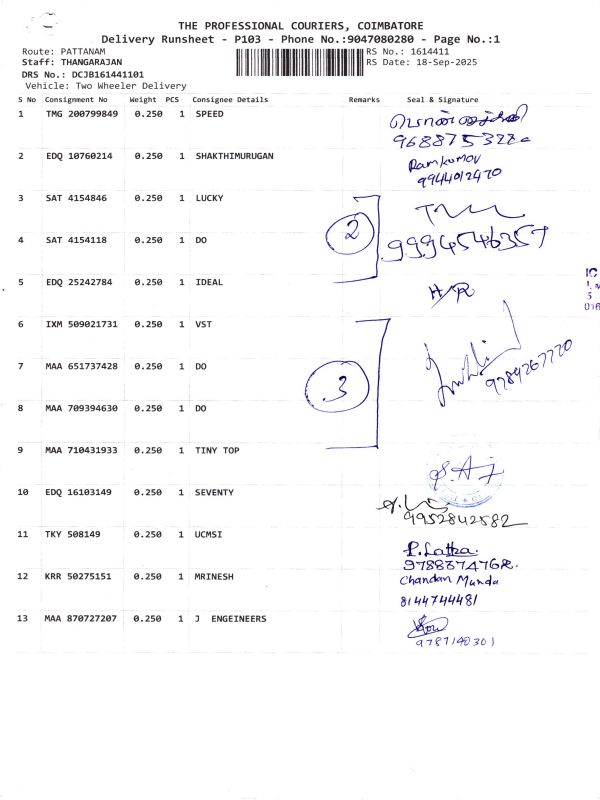 THE PROFESSIONAL COURIERS, COIMBATORE
Delivery Runsheet - P103 - Phone No.:9047080280 - Page No.:1
Route: PATTANAM
RS No.: 1614411
Staff: THANGARAJAN
RS Date: 18-Sep-2025
DRS No.: DCJB161441101
Vehicle: Two Wheeler Delivery
S No Consignment No Weight PCS Consignee Details Remarks Seal & Signature
1 TMG 200799849 0.250 1 SPEED
2 EDQ 10760214 0.250 1 SHAKTHIMURUGAN
Ramkumar
9944012470
3 SAT 4154846 0.250 1 LUCKY
2
4 SAT 4154118 0.250 1 DO
9994546357
5 EDQ 25242784 0.250 1 IDEAL
H/R
6 IXM 509021731 0.250 1 VST
7 MAA 651737428 0.250 1 DO
9789267720
3
8 MAA 709394630 0.250 1 DO
9 MAA 710431933 0.250 1 TINY TOP
10 EDQ 16103149 0.250 1 SEVENTY
9952842582
11 TKY 508149 0.250 1 UCMSI
P. Latha.
12 KRR 50275151 0.250 1 MRINESH
Chandan Munda
8144744481
13 MAA 870727207 0.250 1 J ENGEINEERS
9787140301